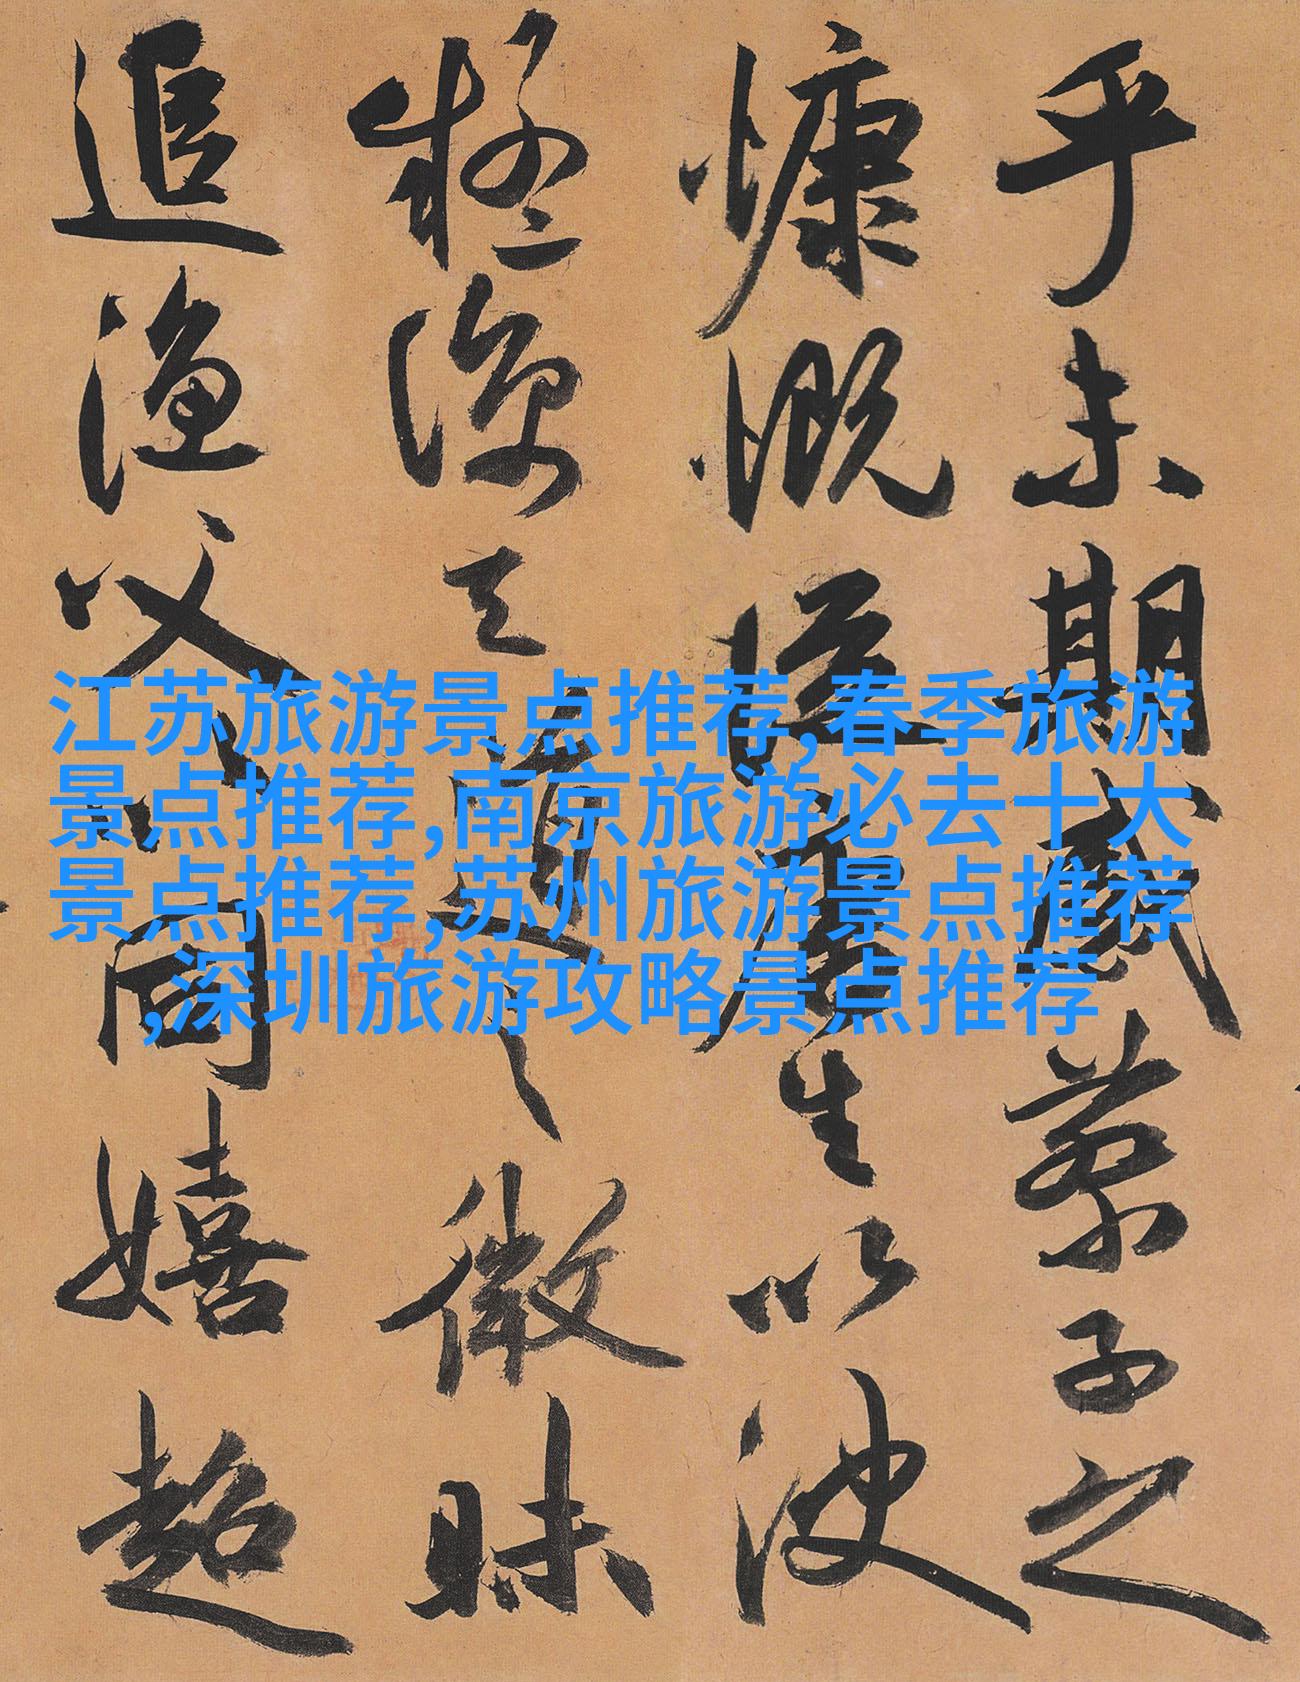 江苏旅游景点推荐,春季旅游
景点推荐,南京旅游必去十大
景点推荐,苏州旅游景点推荐
,深圳旅游攻略景点推荐
乎未期感蔡子之
慷慨從唐生以決
疑諒天道之微昧
追漁父以同嬉超